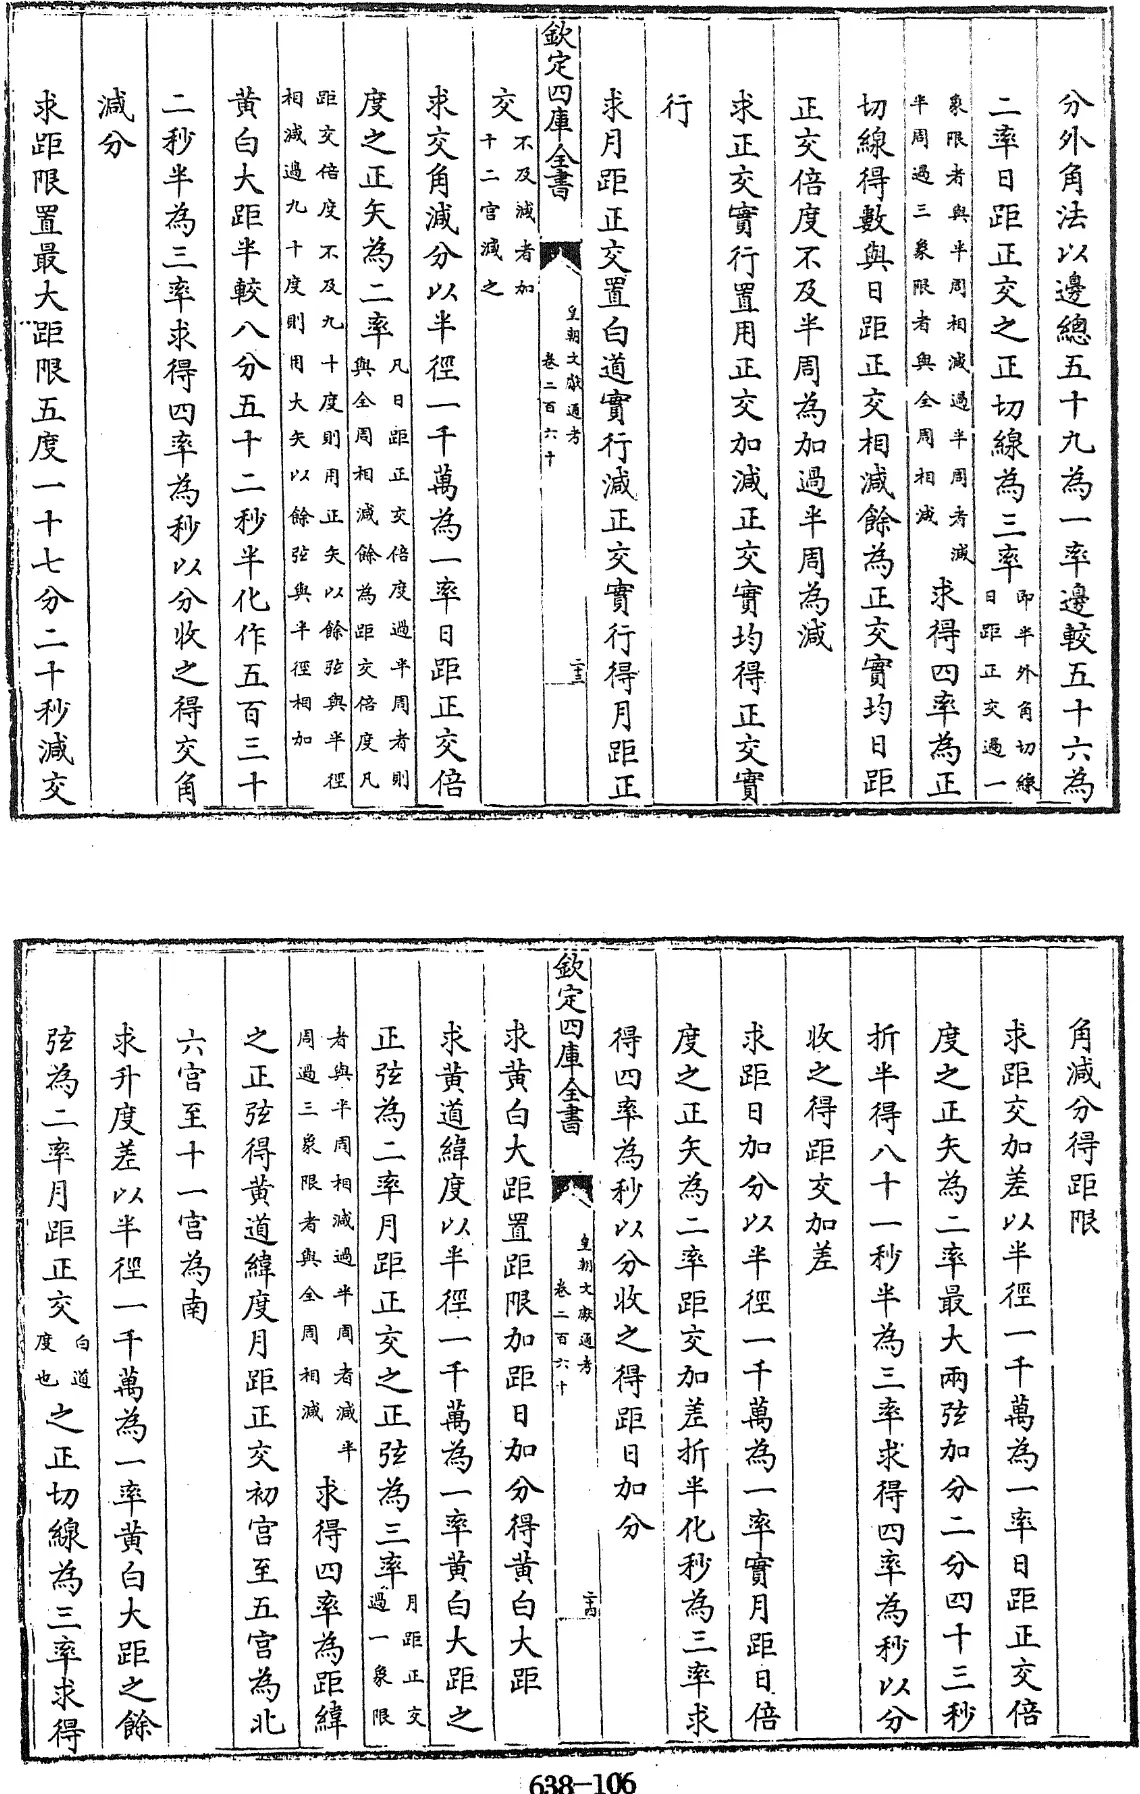 分外角法以邊總五十九為一率邊較五十六為
二率日距正交之正切線為三率即半外角切線日距正交過一
象限者與半周相減過半周者減半周過三象限者與全周相減求得四率為正
切線得數與日距正交相減餘為正交實均日距
正交倍度不及半周為加過半周為減
求正交實行置用正交加減正交實均得正交實
行
求月距正交置白道實行減正交實行得月距正
欽定四庫全書
皇朝文獻通考
卷二百六十
二十三
交不及減者加十二宮減之
求交角減分以半徑一千萬為一率日距正交倍
度之正矢為二率凡日距正交倍度過半周者則與全周相減餘為距交倍度凡
距交倍度不及九十度則用正矢以餘弦與半徑相減過九十度則用大矢以餘弦與半徑相加
黃白大距半較八分五十二秒半化作五百三十
二秒半為三率求得四率為秒以分收之得交角
減分
求距限置最大距限五度一十七分二十秒減交
角減分得距限
求距交加差以半徑一千萬為一率日距正交倍
度之正矢為二率最大兩弦加分二分四十三秒
折半得八十一秒半為三率求得四率為秒以分
收之得距交加差
求距日加分以半徑一千萬為一率實月距日倍
度之正矢為二率距交加差折半化秒為三率求
得四率為秒以分收之得距日加分
欽定四庫全書
皇朝文獻通考
卷二百六十
二十四
求黃白大距置距限加距日加分得黃白大距
求黃道緯度以半徑一千萬為一率黃白大距之
正弦為二率月距正交之正弦為三率月距正交過一象限
者與半周相減過半周者減半周過三象限者與全周相減求得四率為距緯
之正弦得黃道緯度月距正交初宮至五宮為北
六宮至十一宮為南
求升度差以半徑一千萬為一率黃白大距之餘
弦為二率月距正交白道度也之正切線為三率求得
638-106